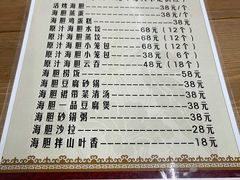 活烤海胆 38元/个
海胆蒸蛋 38元/个
海胆鸡蛋糕 38元
原汁海胆水饺 68元(12个)
原汁海胆蒸饺 68元(12个)
原汁海胆小笼包 38元(6个)
原汁海胆小笼包 68元(12个)
原汁海胆云吞 48元(18个)
海胆捞饭 58元
海胆豆腐砂锅 38元
海胆裙带菜清汤 38元
海胆一品豆腐煲 38元
海胆砂锅粥 38元
海胆沙拉 28元
海胆拌山叶香 18元